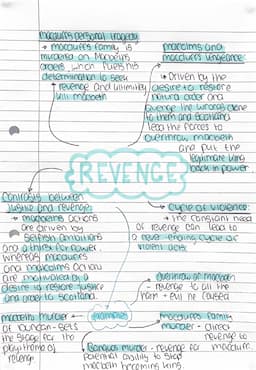 macduffs personal tragedy
→ macduffs family is
murdered on Macbeths
orders, which fuels his
determination to seek
revenge and ultimately
kill macbeth
malcolms and
macduffs vengeance
→ Driven by the
desire to restore
natural order and
avenge the wrongs done
to them and Scotland
lead the forces to
overthrow macbeth
and put the
legitimate king
back in power
REVENGE
Contrasts between
justice and revenge:
→ macbeths actions
are driven by
selfish ambitions
and a thirst for power
whereas macduffs
and malcolms action
are motivated by a
desire to restore justice
and order to Scotland.
Cycle of violence:
→ the constant need
of revenge can lead to
a never ending cycle of
violent acts.
examples
overthrow of macbeth
- revenge to all the
harm + evil he caused
macbeths murder
of Duncan - sets
the stage for the
play theme of
revenge
macduffs family
murder - direct
revenge to
macduff
Banquos murder - revenge for
potential ability to stop
macbeth becoming king.